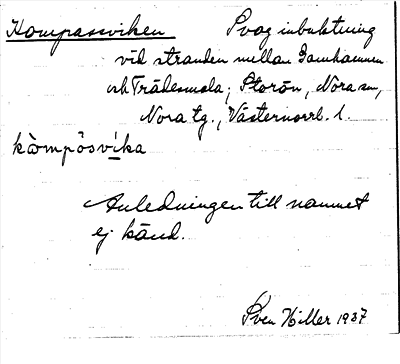 Kompassviken Svag inbuktning
vid stranden mellan Gamhamnen
och Trädesmola, Storön, Nora sn,
Nora tg., Västernorrl. l.
kàmpösvika
Anledningen till namnet
ej känd.
Sven Hiller 1937